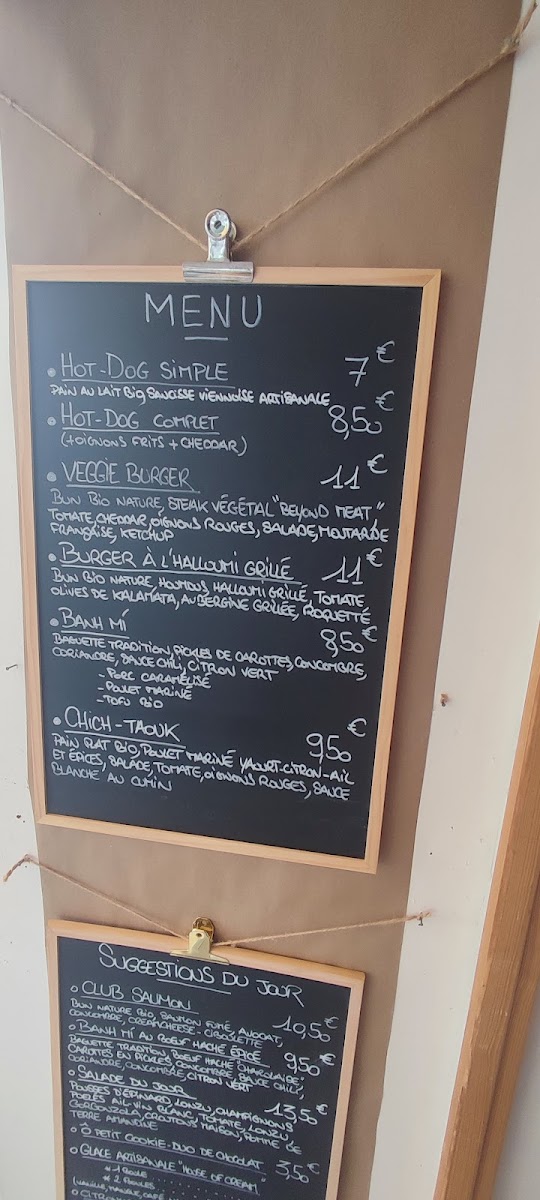 MENU
• HOT-DOG SIMPLE 7€
PAIN AU LAIT BIO, SAUCISSE VIENNOISE ARTISANALE
• HOT-DOG COMPLET 8,50€
(+OIGNONS FRITS + CHEDDAR)
• VEGGIE BURGER 11€
BUN BIO NATURE, STEAK VÉGÉTAL "BEYOND MEAT",
TOMATE, CHEDDAR, OIGNONS ROUGES, SALADE, MOUTARDE
FRANÇAISE, KETCHUP
• BURGER À L'HALLOUMI GRILLÉ 11€
BUN BIO NATURE, HOUMOUS, HALLOUMI GRILLÉ, TOMATE
OLIVES DE KALAMATA, AUBERGINE GRILLÉE, ROQUETTE
• BANH MÍ 8,50€
BAGUETTE TRADITION, PICKLES DE CAROTTES, CONCOMBRE,
CORIANDRE, SAUCE CHILI, CITRON VERT
- PORC CARAMÉLISÉ
- POULET MARINÉ
- TOFU BIO
• CHICH-TAOUK 9,50€
PAIN PLAT BIO, POULET MARINÉ YAOURT-CITRON-AIL
ET ÉPICES, SALADE, TOMATE, OIGNONS ROUGES, SAUCE
BLANCHE AU CUMIN
SUGGESTIONS DU JOUR
• CLUB SAUMON 10,50€
BUN NATURE BIO, SAUMON FUMÉ, AVOCAT,
CONCOMBRE, CREAMCHEESE-CIBOULETTE
• BANH MÍ AU BŒUF HACHÉ ÉPICÉ 9,50€
BAGUETTE TRADITION, BOEUF HACHÉ "CHAROLAISE"
CAROTTES EN PICKLES, CONCOMBRE, SAUCE CHILI,
CORIANDRE, CONCOMBRE, CITRON VERT
• SALADE DU JOUR 13,50€
POUSSES D'ÉPINARD, LONZU, CHAMPIGNONS
POÊLÉS AIL-VIN BLANC, TOMATE, LONZU,
GORGONZOLA, CROUTONS MAISON, POMME DE
TERRE AMANDINE
• Ô PETIT COOKIE-DUO DE CHOCOLAT 3,50€
• GLACE ARTISANALE "HOUSE OF CREAM"
* 1 BOULE
* 2 BOULES
(VANILLE, MANGUE, CAFÉ